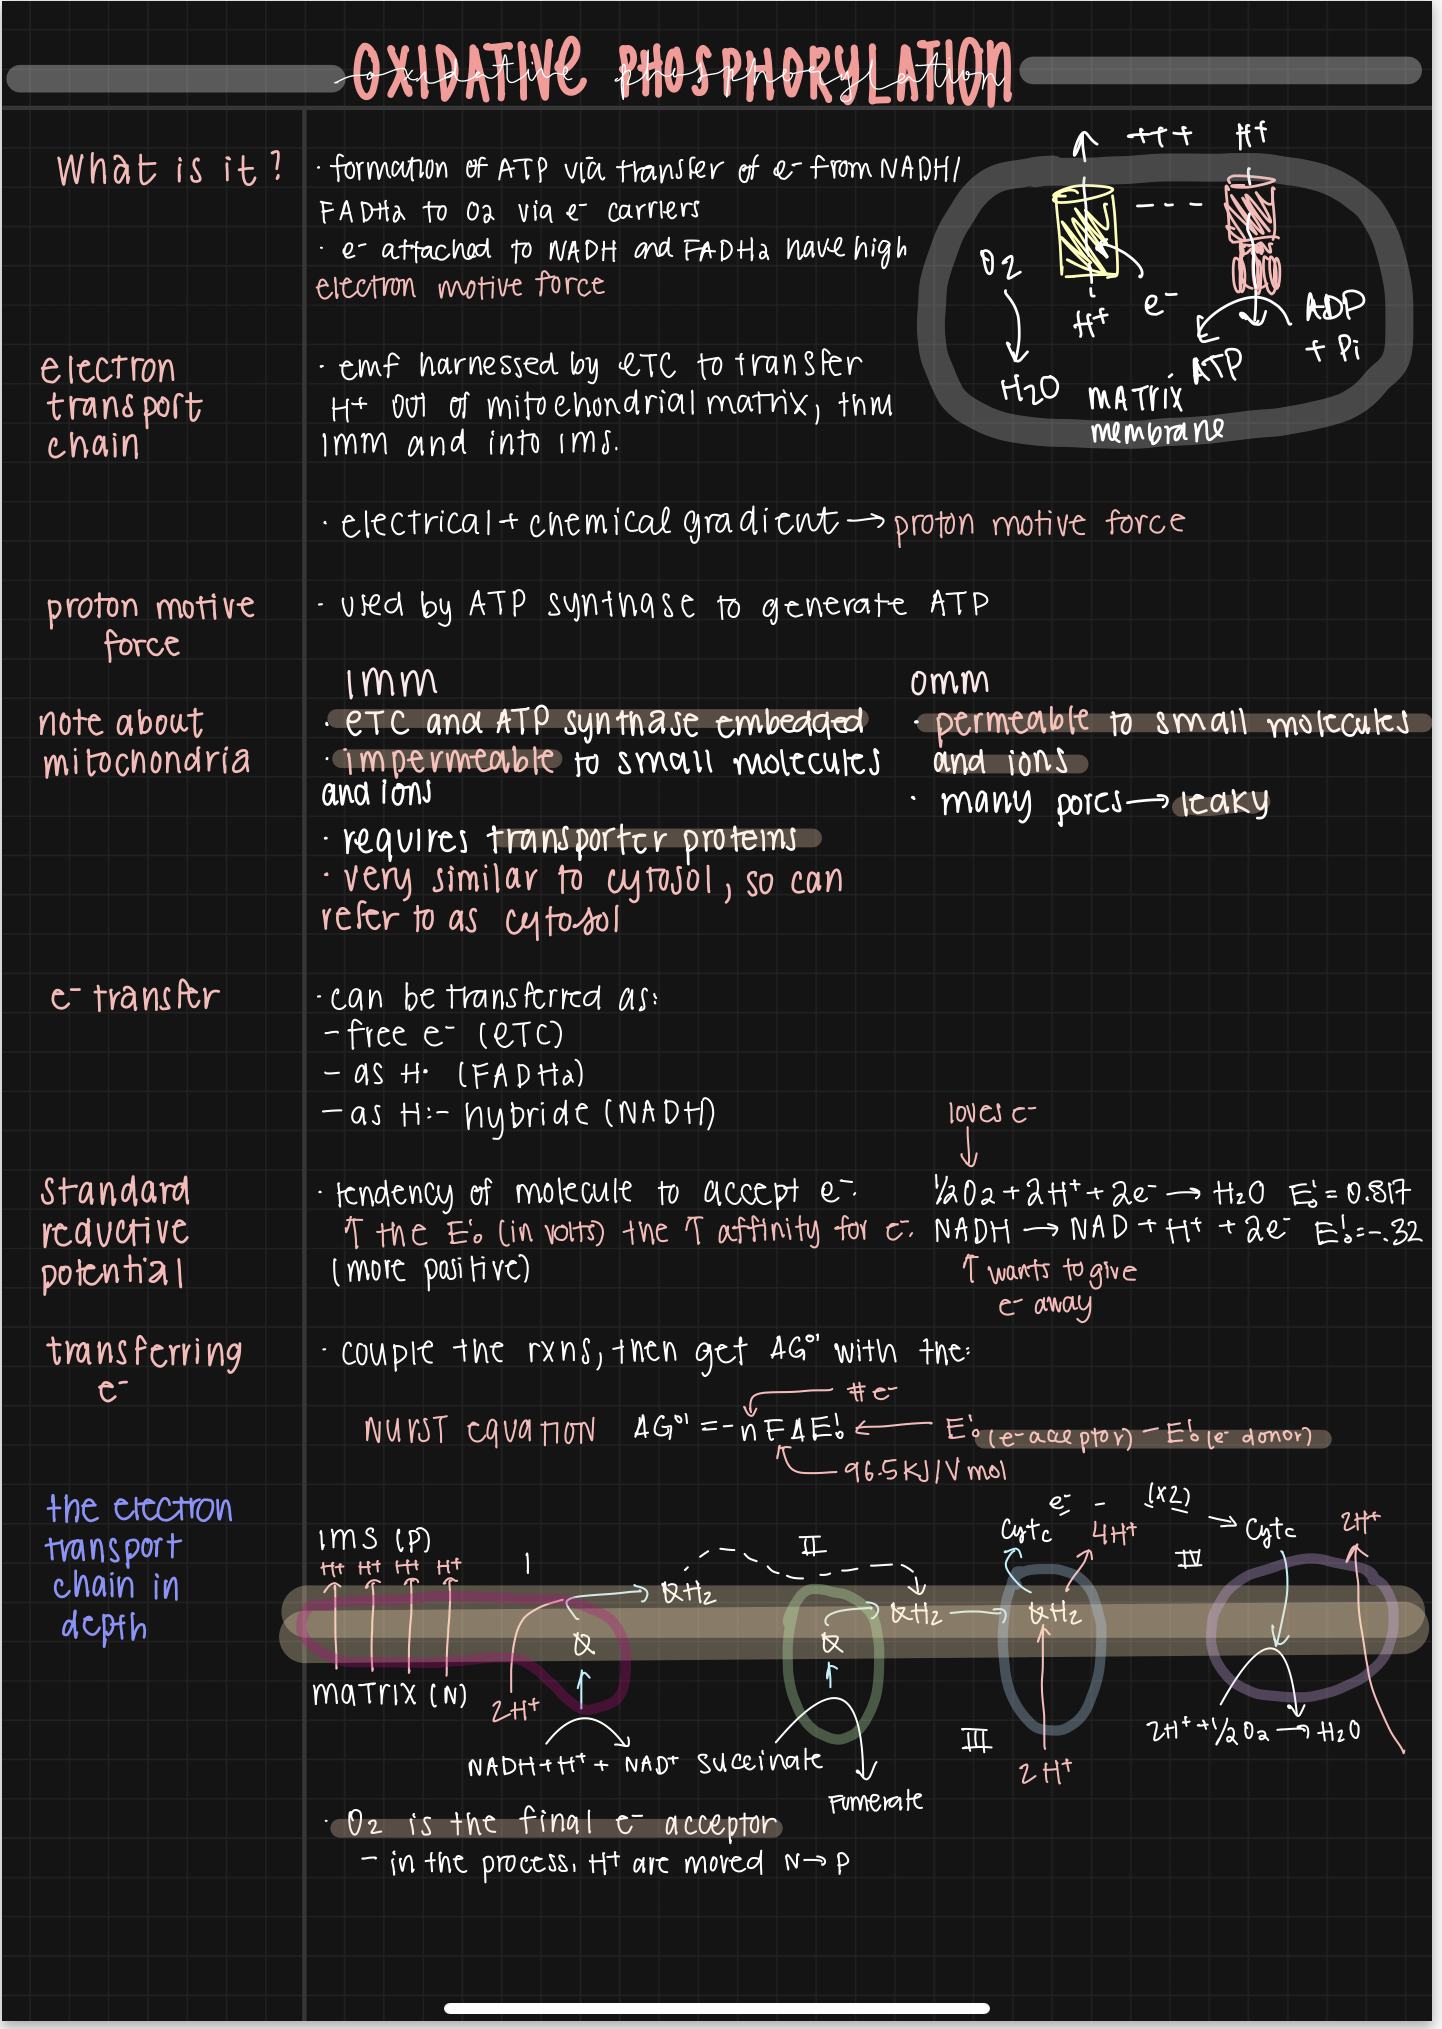 OXIDATIVE PHOSPHORYLATION
oxidative phosphorylation
What is it?
· formation of ATP via transfer of e⁻ from NADH/
FADH2 to O2 via e⁻ carriers
· e⁻ attached to NADH and FADH2 have high
electron motive force
+++ H+
---
O2
H+
e⁻
H2O
ATP
ADP
+ Pi
MATRIX
membrane
electron
transport
chain
· emf harnessed by ETC to transfer
H+ out of mitochondrial matrix, thru
IMM and into IMS.
· electrical + chemical gradient → proton motive force
proton motive
force
· used by ATP synthase to generate ATP
note about
mitochondria
IMM
· ETC and ATP synthase embedded
· impermeable to small molecules
and ions
· requires transporter proteins
· very similar to cytosol, so can
refer to as cytosol
OMM
· permeable to small molecules
and ions
· many pores → leaky
e⁻ transfer
· can be transferred as:
- free e⁻ (ETC)
- as H· (FADH2)
- as H:- hybride (NADH)
standard
reductive
potential
· tendency of molecule to accept e⁻.
↑ the E₀' (in volts) the ↑ affinity for e⁻.
(more positive)
loves e⁻
↓
½O2 + 2H+ + 2e⁻ → H2O E₀' = 0.817
NADH → NAD + H+ + 2e⁻ E₀' = -.32
↑ wants to give
e⁻ away
transferring
e⁻
· couple the rxns, then get ΔG°' with the:
# e⁻
NURST equation ΔG°' = -nFΔE₀' ← E₀' (e⁻ acceptor) - E₀' (e⁻ donor)
96.5 KJ/V mol
the electron
transport
chain in
depth
IMS (P)
H+ H+ H+ H+
I
II
e⁻ - (x2)
Cytc 4H+ → Cytc 2H+
IV
QH2
QH2 → QH2
Q
Q
MATRIX (N)
2H+
NADH+H+ + NAD+
succinate
Fumerate
III
2H+
2H+ + ½O2 → H2O
· O2 is the final e⁻ acceptor
- in the process, H+ are moved N → P